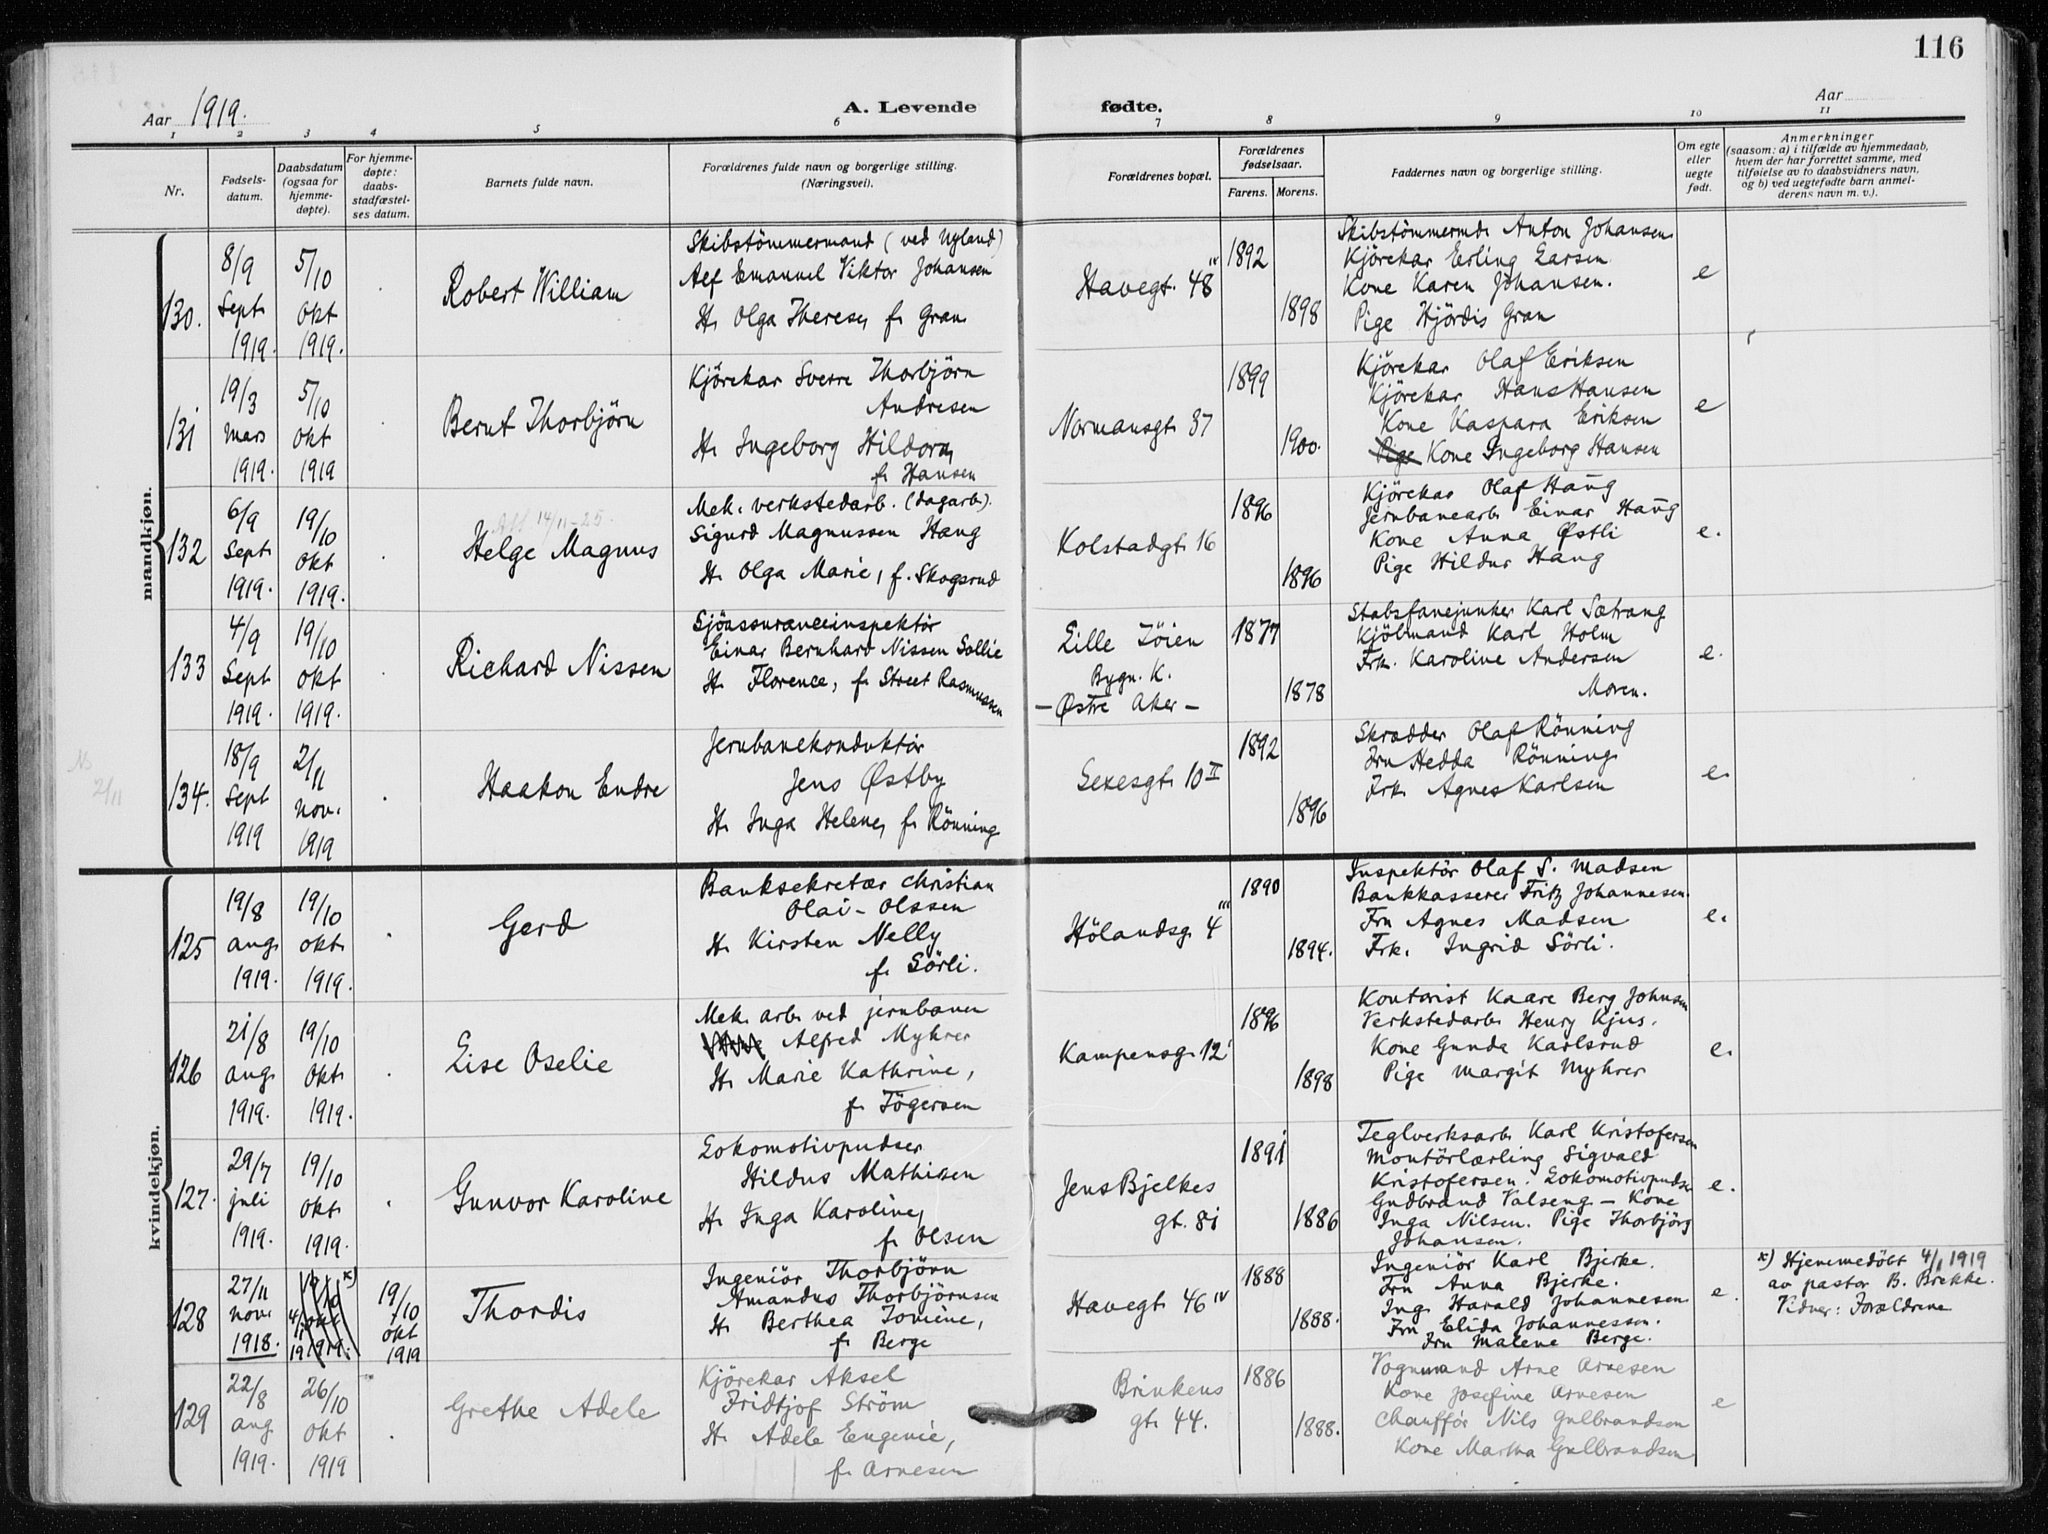 116
Aar 1919.
A. Levende fødte.
Aar
1 2 3 4 5 6 7 8 9 10 11
Nr.
Fødsels-
datum.
Daabsdatum
(ogsaa for
hjemme-
døpte).
For hjemme-
døpte:
daabs-
stadfæstel-
ses datum.
Barnets fulde navn.
Forældrenes fulde navn og borgerlige stilling.
(Næringsvei).
Forældrenes bopæl.
Forældrenes
fødselsaar.
Farens. Morens.
Faddernes navn og borgerlige stilling.
Om egte
eller
uegte
født.
Anmerkninger
(saasom: a) i tilfælde av hjemmedaab,
hvem der har forrettet samme, med
tilføielse av to daabsvidners navn,
og b) ved uegtefødte barn anmel-
derens navn m. v.).
mandkjøn.
130.
8/9
Sept
1919.
5/10
Okt
1919.
Robert William
Skibstömmermand (ved Nyland)
Alf Emanuel Viktor Johansen
H. Olga Therese, f. Gran
Havegt. 48 IV
1892
1898
Skibstömmermd. Anton Johansen
Kjörekar Erling Larsen
Kone Karen Johansen.
Pige Hjördis Gran
e
131
19/3
Mars
1919.
5/10
Okt
1919
Bernt Thorbjörn
Kjörekar Sverre Thorbjörn
Andresen
H. Ingeborg Hildora,
f. Hansen
Normansgt. 37
1899
1900.
Kjörekar Olaf Eriksen
Kjörekar Hans Hansen
Kone Kaspara Eriksen
Pige Kone Ingeborg Hansen
e
132
6/9
Sept
1919.
19/10
Okt
1919.
14/11-25.
Helge Magnus
Mek. verkstedarb. (dagarb.)
Sigurd Magnussen Haug
H. Olga Marie, f. Skogsrud
Kolstadgt. 16
1896
1896
Kjörekar Olaf Haug
Jernbanearb. Einar Haug
Kone Anna Østli
Pige Hildur Haug
e.
133
4/9
Sept
1919.
19/10
Okt
1919.
Richard Nissen
Sjöassuranceinspektör
Einar Bernhard Nissen Sollie
H. Florence, f. Street Rasmussen
Lille Töien
Bygn. K.
- Østre Aker -
1877
1878
Stabsfanejunker Karl Sætrang
Kjöbmand Karl Holm
Frk. Karoline Andersen
Moren.
e.
2/11
134.
18/9
Sept
1919
2/11
Nov.
1919
Haakon Endre
Jernbanekonduktör
Jens Østby
H. Inga Helene, f. Rönning
Sexesgt. 10 II
1892
1896
Skrædder Olaf Rönning
Fru Hedda Rönning
Frk. Agnes Karlsen
e.
kvindekjøn.
125
19/8
aug.
1919.
19/10
okt.
1919.
Gerd
Banksekretær Christian
Olai-Olssen
H. Kirsten Nelly
f. Sörli.
Hölandsg. 4 III
1890
1894.
Inspektör Olaf S. Madsen
Bankkasserer Fritz Johannesen.
Fru Agnes Madsen
Frk. Ingrid Sörli.
e.
126
21/8
aug.
1919.
19/10
Okt.
1919.
Lise Oselie
Mek. arb. ved jernbanen
Alfred Myhrer
H. Marie Kathrine,
f. Tögersen
Kampensg. 12
1896
1898
Kontorist Kaare Berg Johnsen
Verkstedarb. Henry Kjus.
Kone Gunda Karlsrud
Pige Margit Myhrer
e.
127.
29/7
juli
1919.
19/10
Okt
1919.
Gunvor Karoline
Lokomotivpudser
Hildus Mathisen
H. Inga Karoline,
f. Olsen
Jens Bjelkes
gt. 81
1891
1886
Teglverksarb. Karl Kristofersen
Montörlærling Sigvald
Kristofersen. Lokomotivpudser
Gudbrand Valseng - Kone
Inga Nilsen. Pige Thorbjörg
Johansen.
e.
128
27/11
nov.
1918.
19/10 x)
4/1 okt
19 1919.
19/10
okt
1919
Thordis
Ingeniör Thorbjörn
Amandus Thorbjörnsen
H. Berthea Jomine,
f. Berge
Havegt. 46 IV
1888
1888.
Ingeniör Karl Bjerke.
Fru Anna Bjerke.
Ing. Harald Johannesen
Fru Elida Johannessen.
Fru Malene Berge.
e.
x) Hjemmedöbt 4/1 1919
av pastor B. Brekke.
Vidner: Forældrene
129
22/8
aug
1919.
26/10
Okt
1919
Grethe Adele
Kjörekar Aksel
Fridtjof Ström
H. Adele Eugenie,
f. Arnesen
Brinkens
gt. 44.
1886
1888.
Vognmand Arne Arnesen
Kone Josefine Arnesen
Chaufför Nils Gulbrandsen
Kone Martha Gulbrandsen
e